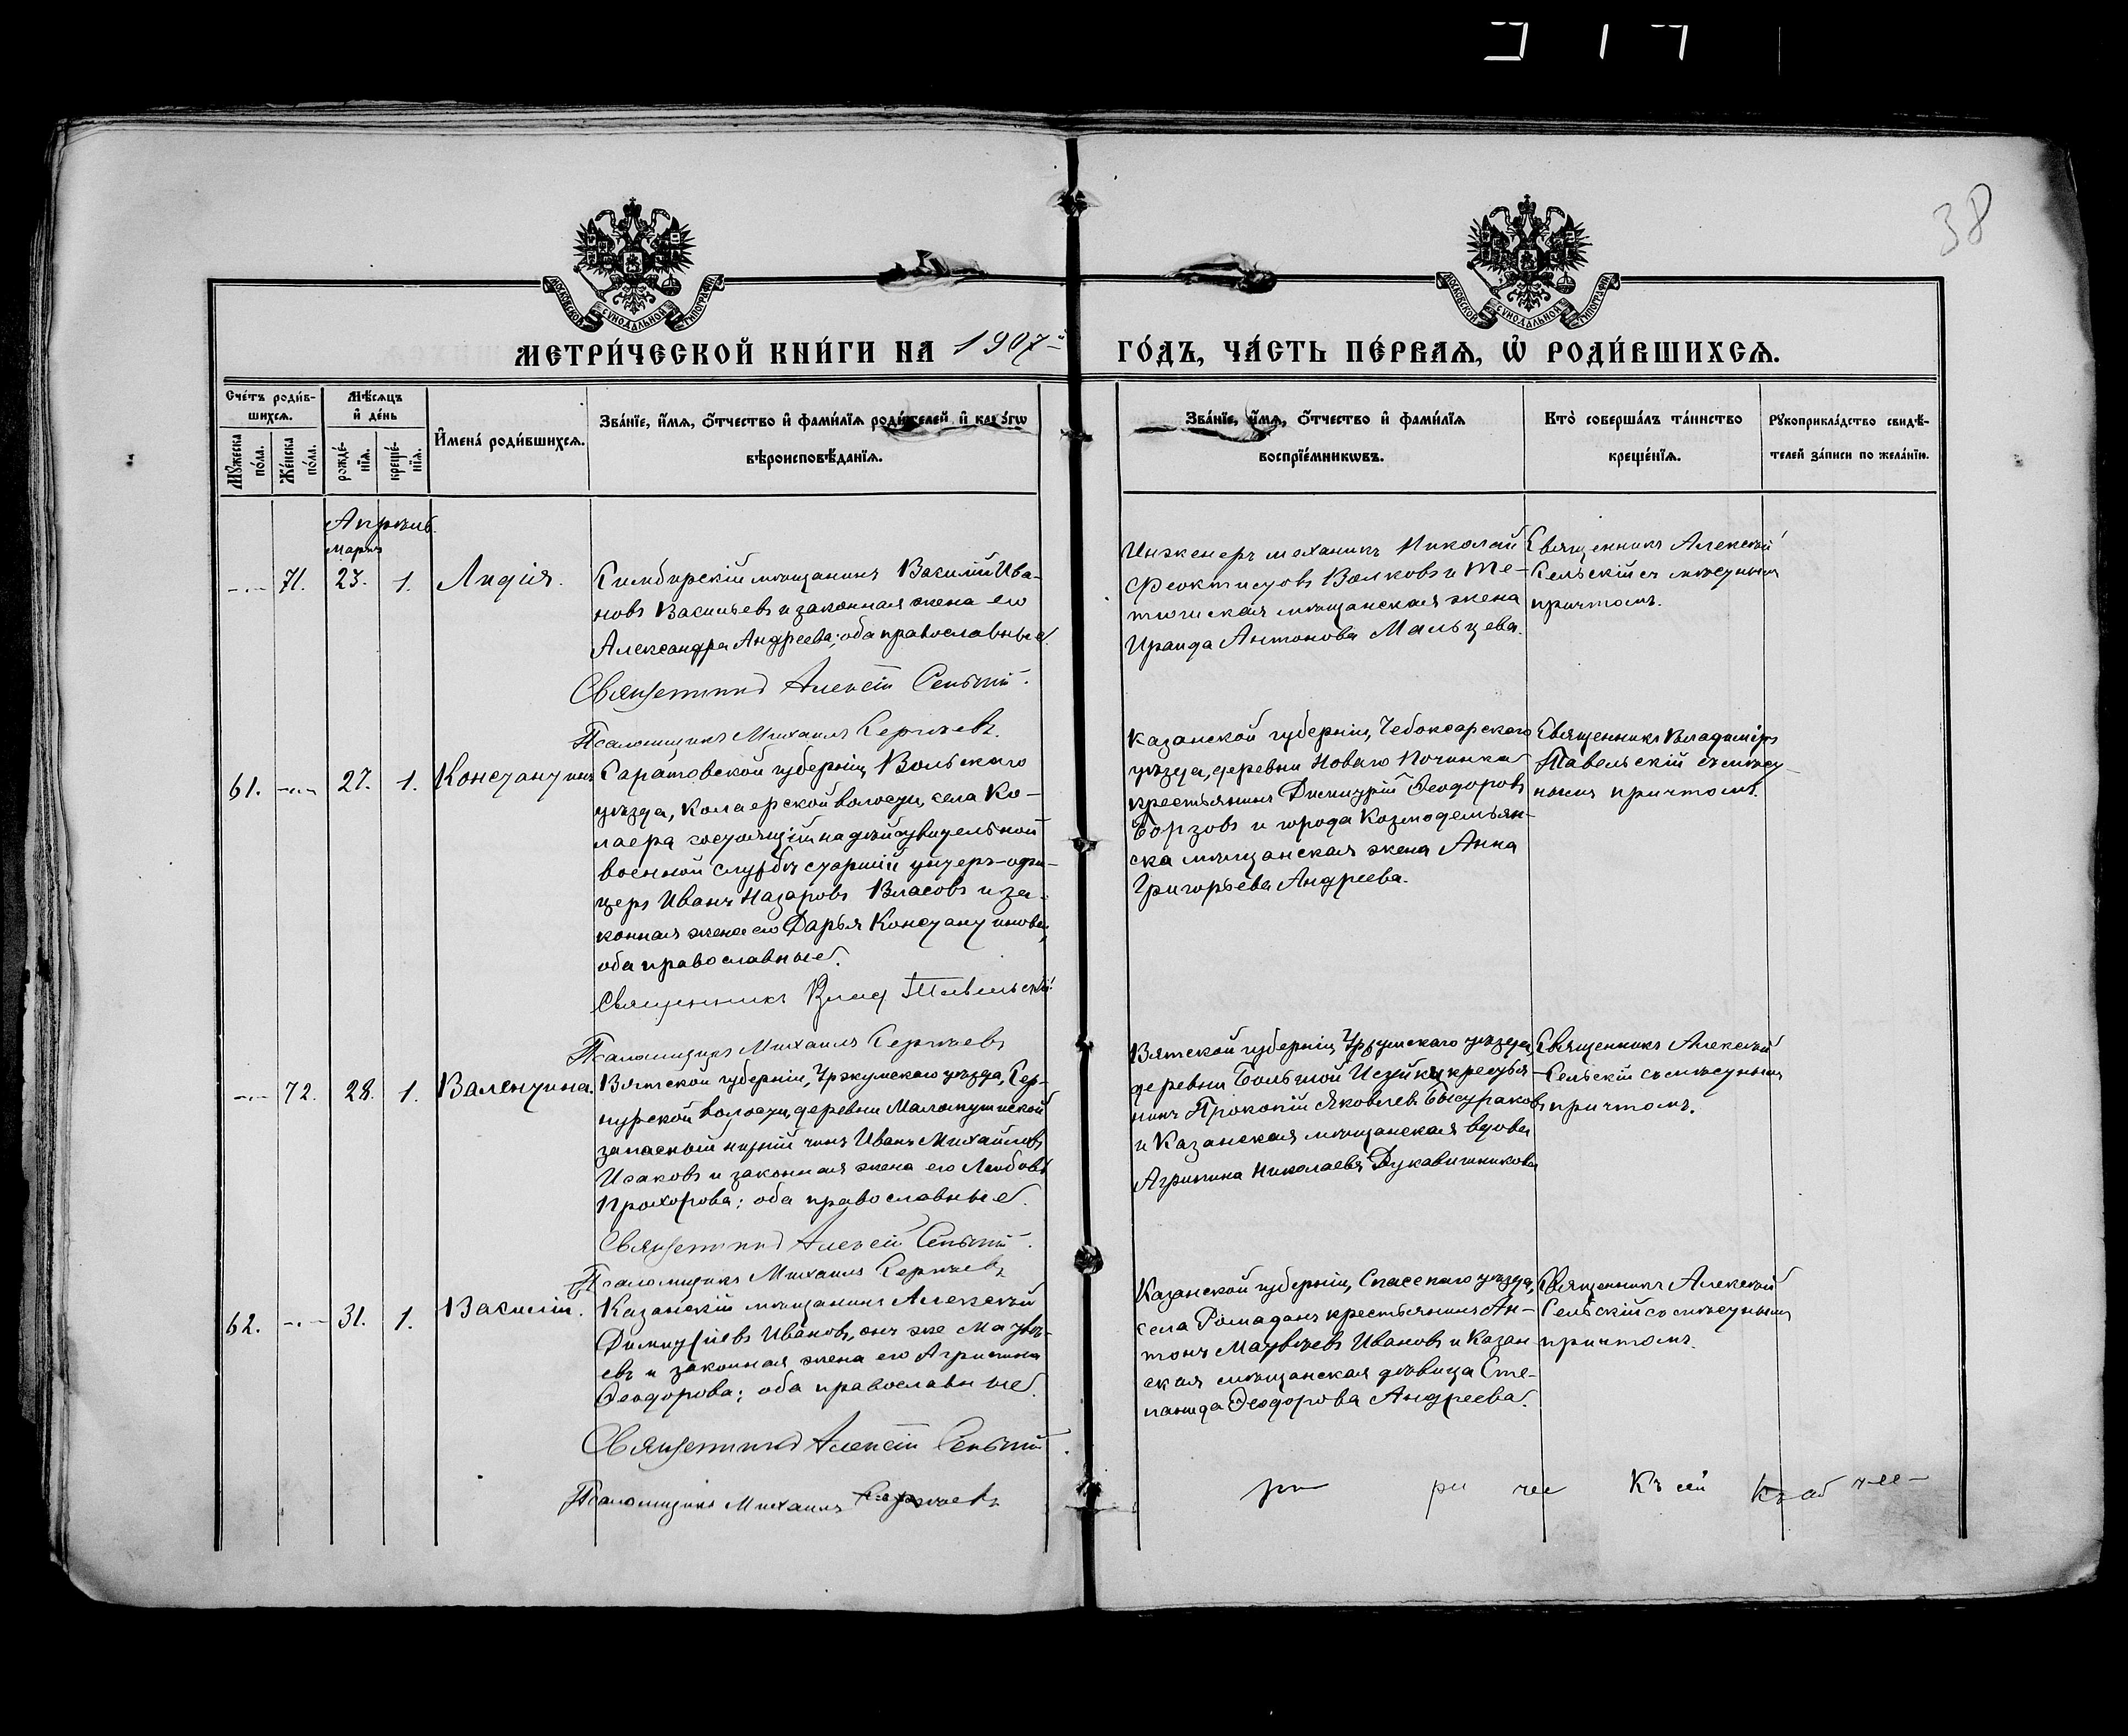 38
МОСКОВСКОЙ СУНОДАЛЬНОЙ ТИПОГРАФІИ
МОСКОВСКОЙ СУНОДАЛЬНОЙ ТИПОГРАФІИ
МЕТРИ́ЧЕСКОЙ КНИ́ГИ НА 1907-й ГО́ДЪ, ЧА́СТЬ ПЕ́РВАѦ, Ѽ РОДИ́ВШИХСѦ.
Сче́тъ роди́в-
шихсѧ.
Мѣ́сяцъ
и де́нь
Мꙋ́жеска по́ла.
Же́нска по́ла.
рожде́-
нїѧ.
креще́-
нїѧ.
И҆мена̀ роди́вшихсѧ.
Зва́нїе, и҆́мѧ, ѻ҆́тчество и҆ фами́лїѧ роди́телей, и҆ како́гѡ
вѣроисповѣ́данїѧ.
Зва́нїе, и҆́мѧ, ѻ҆́тчество и҆ фами́лїѧ
воспрїе́мникѡвъ.
Кто̀ соверша́лъ та́инство
креще́нїѧ.
Рꙋкоприкла́дство свидѣ́-
телей за́писи по жела́нїю.
Апрѣль.
Мартъ
71. 23. 1. Лидія.
Симбирскій мѣщанинъ Василій Ива-
новъ Васильевъ и законная жена его
Александра Андреева; оба православные.
Священникъ Алексій Сельскій.
Псаломщикъ Михаилъ Сергѣевъ.
Инженеръ механикъ Николай
Феоктистовъ Волковъ и Те-
тюшская мѣщанская жена
Ираида Антонова Мальцева.
Священникъ Алексѣй
Сельскій съ мѣстнымъ
причтомъ.
61. 27. 1. Константинъ
Саратовской губерніи, Вольскаго
уѣзда, Колаерской волости, села Ко-
лаера состоящій на дѣйствительной
военной службѣ старшій унтеръ-офи-
церъ Иванъ Назаровъ Власовъ и за-
конная жена его Дарья Константинова,
оба православные.
Священникъ Влад. Тавельскій
Псаломщикъ Михаилъ Сергѣевъ
Казанской губерніи, Чебоксарскаго
уѣзда, деревни Новаго Починка
крестьянинъ Димитрій Ѳеодоровъ
Борзовъ и города Козмодемьян-
ска мѣщанская жена Анна
Григорьева Андреева.
Священникъ Владиміръ
Тавельскій съ мѣст-
нымъ причтомъ.
72. 28. 1. Валентина.
Вятской губерніи, Уржумскаго уѣзда, Сер-
нурской волости, деревни
запасный нижній чинъ Иванъ Михайловъ
Исаковъ и законная жена его Любовь
Прохорова; оба православные.
Священникъ Алексій Сельскій.
Псаломщикъ Михаилъ Сергѣевъ
Вятской губерніи, Уржумскаго уѣзда,
деревни Большой крестья-
нинъ Прокопій Яковлевъ
и Казанская мѣщанская вдова
Агрипина Николаева Рукавишникова
Священникъ Алексѣй
Сельскій съ мѣстнымъ
причтомъ.
62. 31. 1. Василій.
Казанскій мѣщанинъ Алексѣй
Димитріевъ Ивановъ, онъ же Матвѣ-
евъ и законная жена его Агрипина
Ѳеодорова; оба православные.
Священникъ Алексій Сельскій.
Псаломщикъ Михаилъ Сергѣевъ
Казанской губерніи, Спасскаго уѣзда,
села Ромаданъ крестьянинъ Ан-
тонъ Матвѣевъ Ивановъ и Казан
ская мѣщанская дѣвица Сте-
панида Ѳеодорова Андреева.
Священникъ Алексѣй
Сельскій со мѣстнымъ
причтомъ.
Къ сей